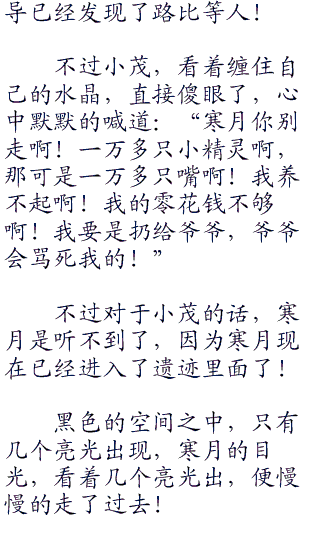 导已经发现了路比等人！
不过小茂，看着缠住自
己的水晶，直接傻眼了，心
中默默的喊道：“寒月你别
走啊！一万多只小精灵啊，
那可是一万多只嘴啊！我养
不起啊！我的零花钱不够
啊！我要是扔给爷爷，爷爷
会骂死我的！”
不过对于小茂的话，寒
月是听不到了，因为寒月现
在已经进入了遗迹里面了！
黑色的空间之中，只有
几个亮光出现，寒月的目
光，看着几个亮光出，便慢
慢的走了过去！